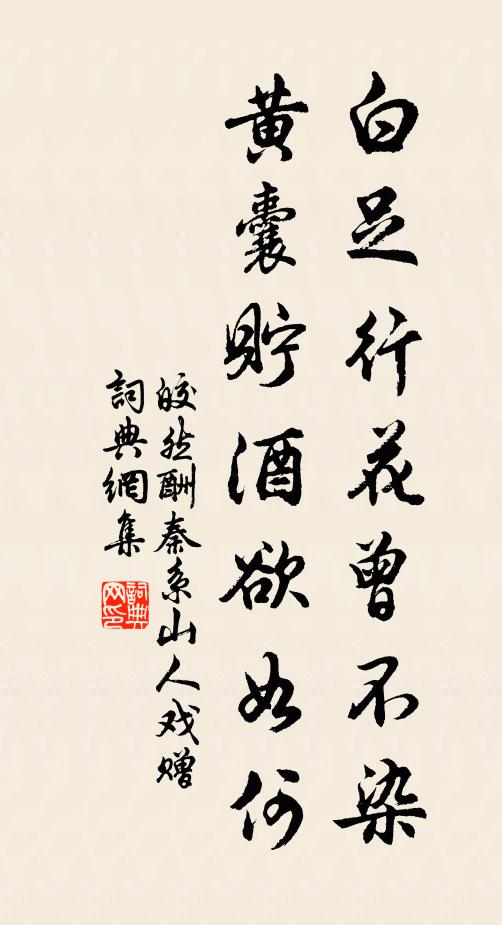 白足行花曾不染
黃囊貯酒欲如何
皎然酬秦系山人戏赠
詞典網集
詞典網印